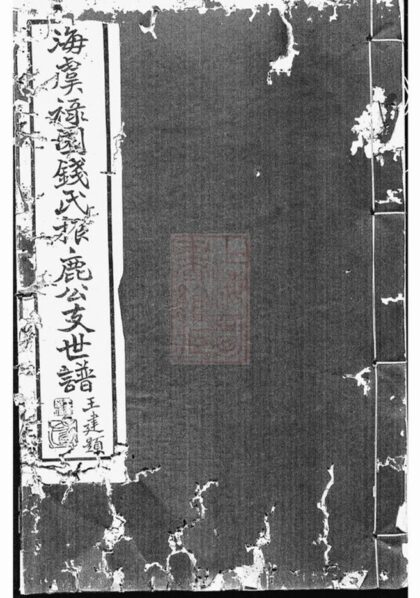 海虞禄園錢氏振鹿公支世譜
王建題